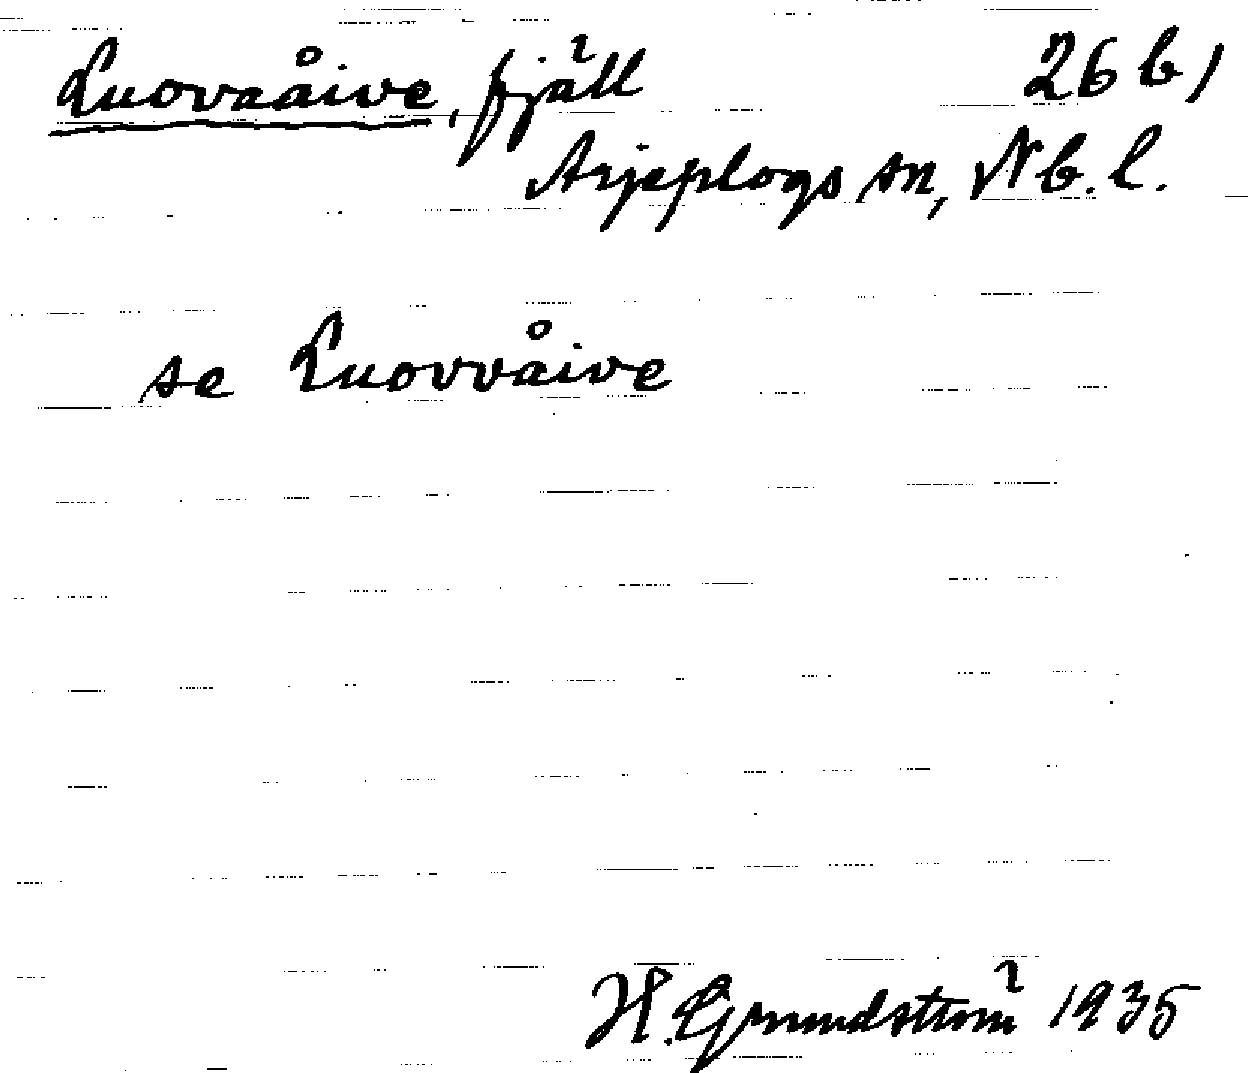 Luovaåive, fjäll 26 b 1
Arjeplogs sn, Nb. l.
se Luovvåive
H. Grundström 1935